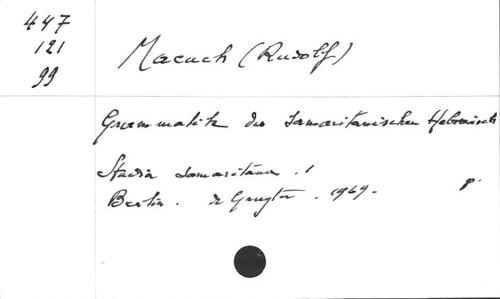 447
121
99
Macuch (Rudolf)
Grammatik des Samaritanischen Hebräisch
Studia Samaritana. 1
Berlin. de Gruyter. 1969. p.